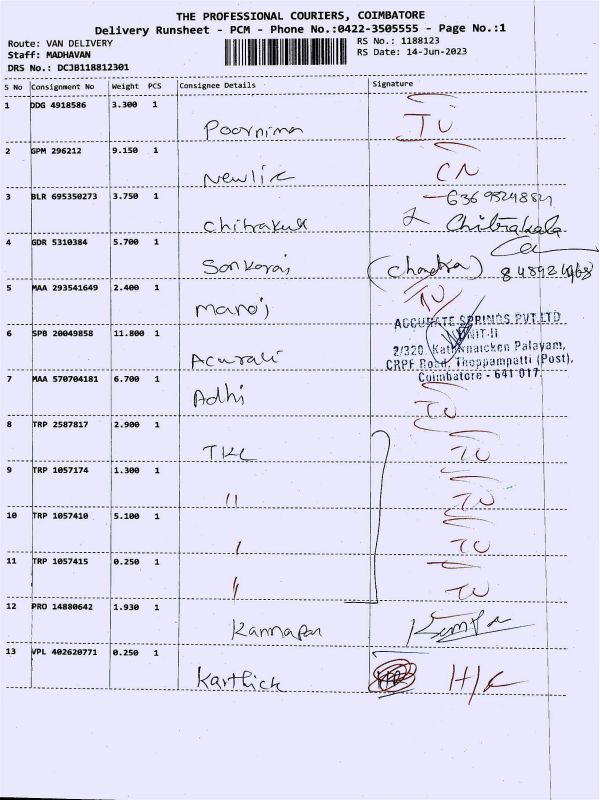 THE PROFESSIONAL COURIERS, COIMBATORE
Delivery Runsheet - PCM - Phone No.:0422-3505555 - Page No.:1
Route: VAN DELIVERY
RS No.: 1188123
Staff: MADHAVAN
RS Date: 14-Jun-2023
DRS No.: DCJB118812301
S No Consignment No Weight PCS Consignee Details Signature
1 DDG 4918586 3.300 1
Poornima IU
2 GPM 296212 9.150 1
CN
3 BLR 695350273 3.750 1
Chitrakala
4 GDR 5310384 5.700 1
(Chandra)
5 MAA 293541649 2.400 1
Manoj IU
ACCURATE SPRINGS PVT LTD
UNIT-II
6 SPB 20049858 11.800 1
2/320, Kathirnaicken Palayam,
CRPF Road, Thoppampatti (Post),
Coimbatore - 641 017.
7 MAA 570704181 6.700 1
Adhi IU
8 TRP 2587817 2.900 1
IU
9 TRP 1057174 1.300 1
11 IU
10 TRP 1057410 5.100 1
IU
11 TRP 1057415 0.250 1
IU
12 PRO 14880642 1.930 1
Kannapan
13 VPL 402620771 0.250 1
Karthick